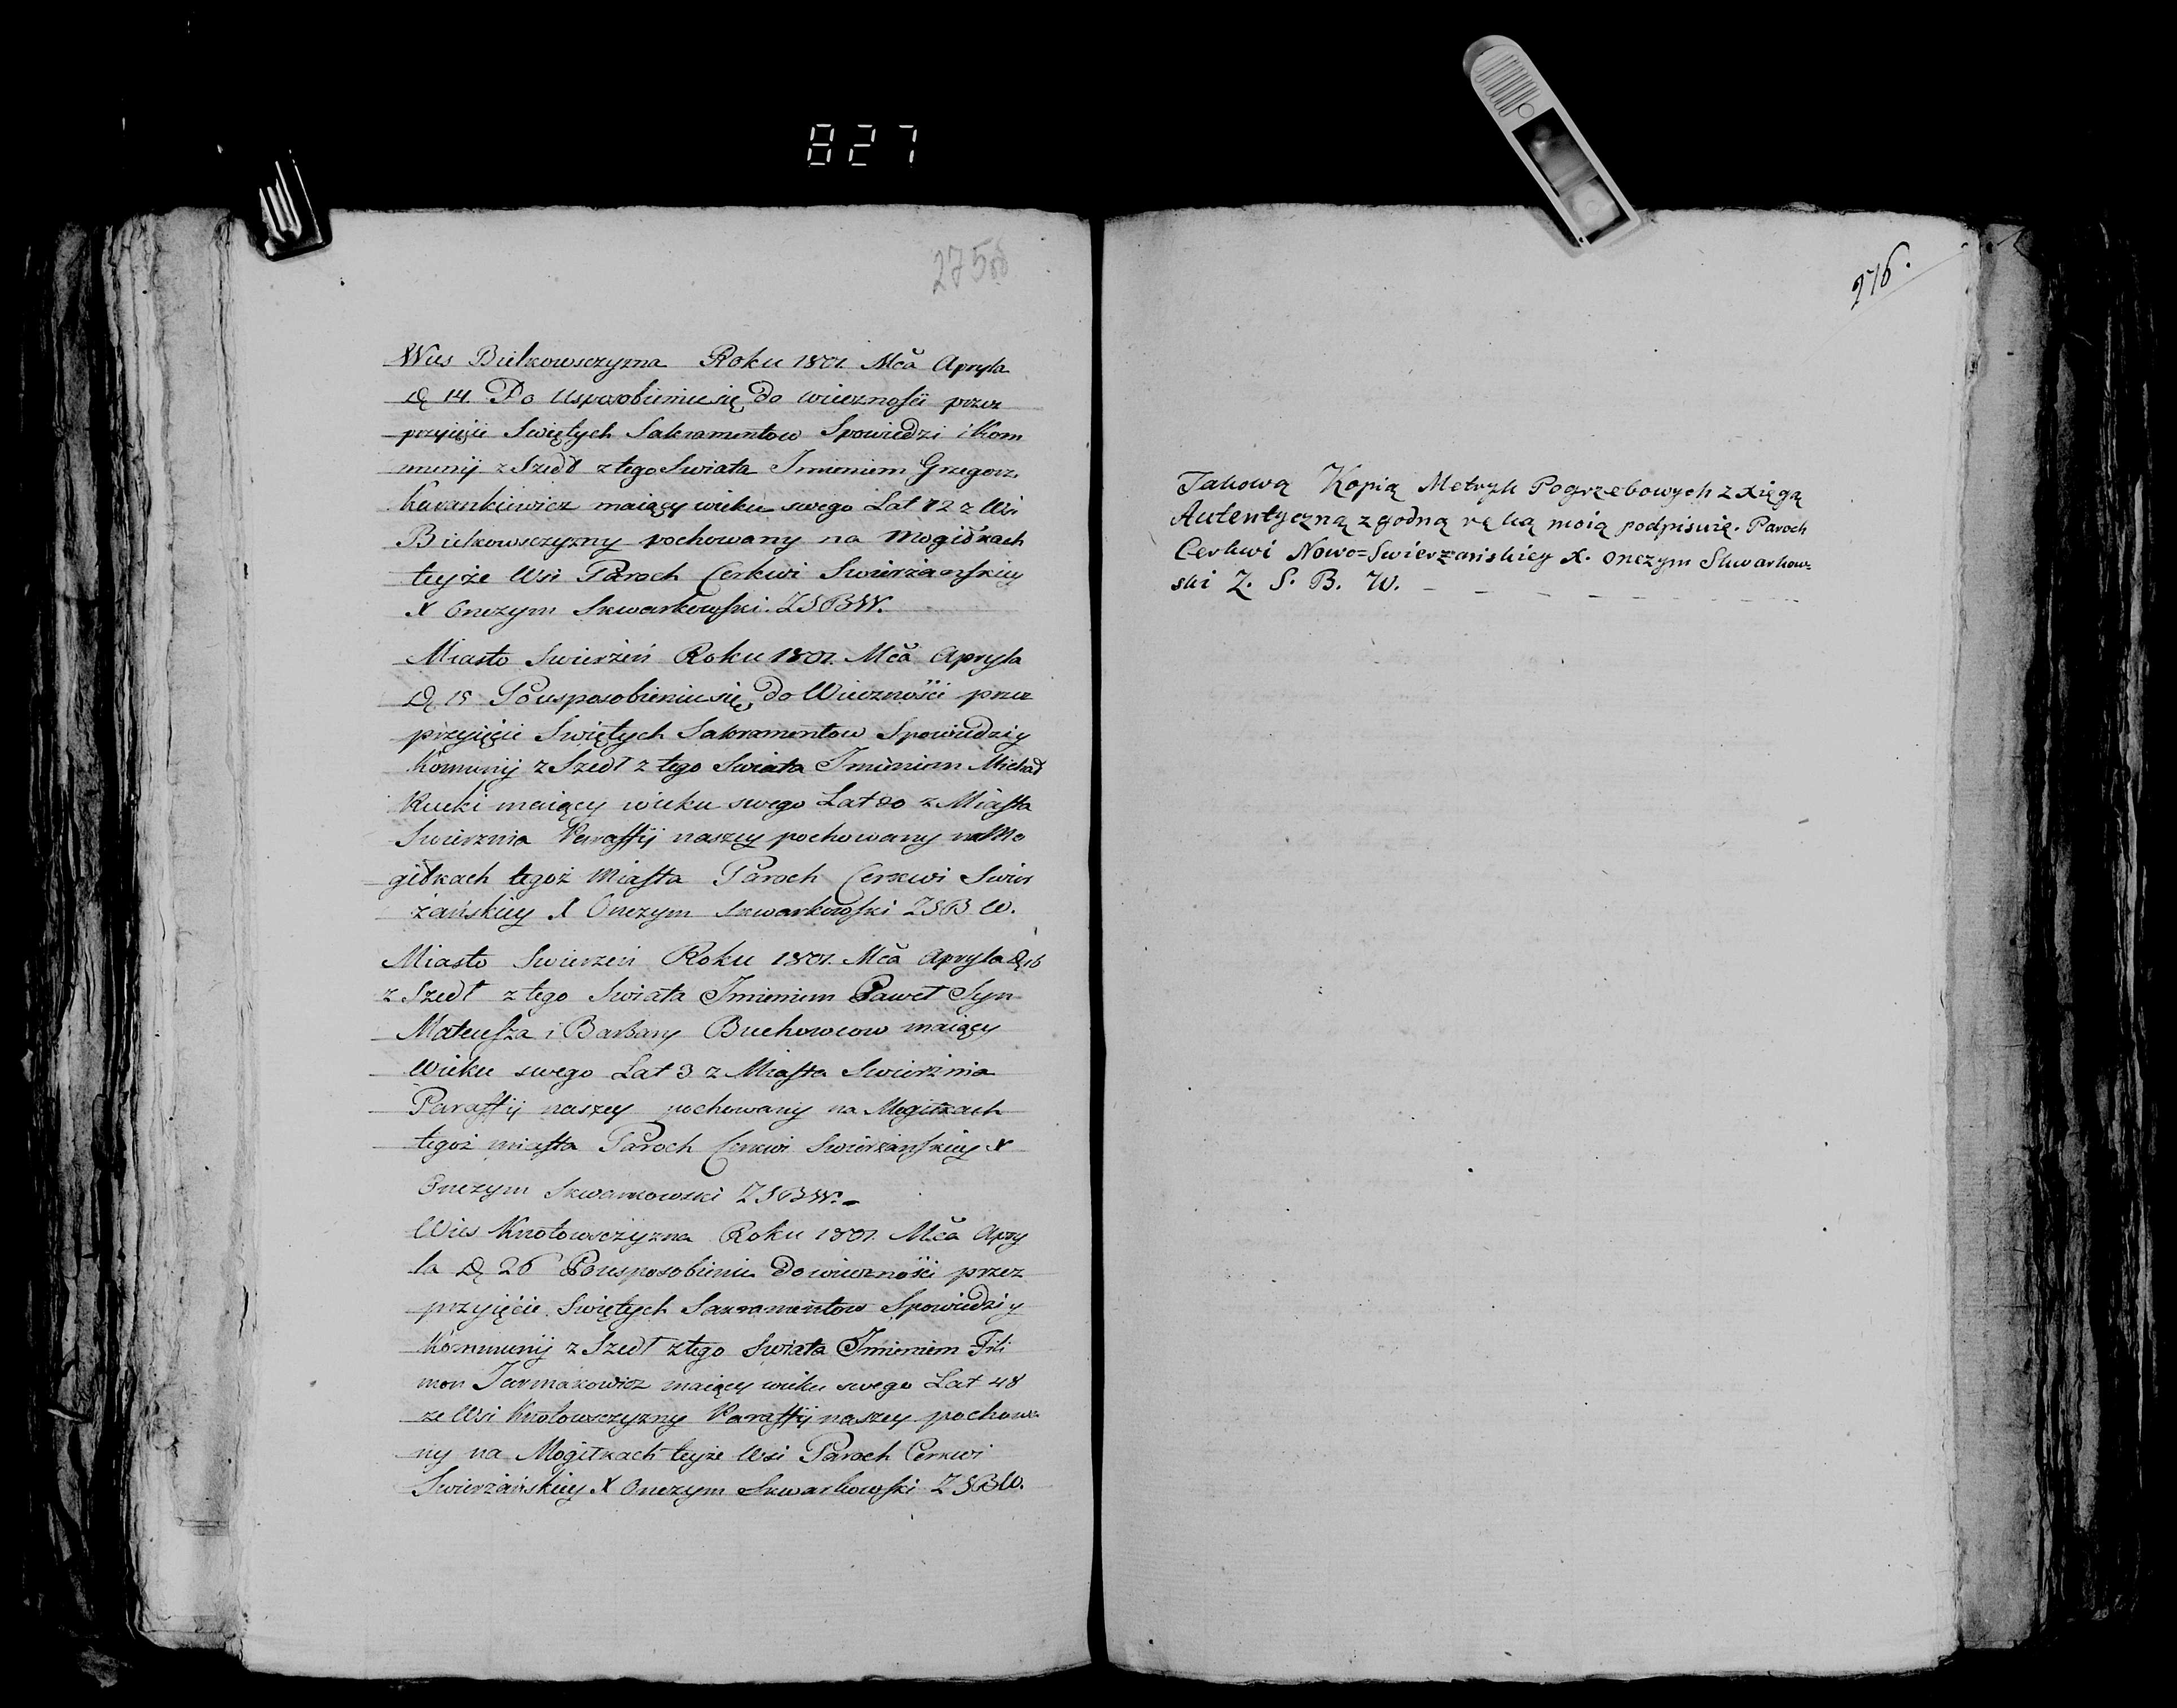 827
275об
Wies Bielkowsczyzna Roku 1801. Mca Apryla
D. 14. Po Usposobieniu się do wiecznosci przez
przyięcie Swiętych Sakramentow Spowiedzi i Kom
munij z Szedł z tego Swiata Imieniem Grzegorz
maiący wieku swego Lat 72 z Wsi
Bielkowsczyzny pochowany na Mogiłkach
teyże Wsi Paroch Cerkwi Swierżańskiey
X Onezym Skwarkowski ZSBW.
Miasto Swierżeń Roku 1801. Mca Apryla
D. 15 Po usposobieniu się do Wieczności przez
przyięcie Swiętych Sakramentow Spowiedzi y
Kommunij z Szedł z tego Swiata Imieniem Michał
Rucki maiący wieku swego Lat 80 z Miasta
Swierznia Paraffij naszey pochowany na Mo
giłkach tegoż Miasta Paroch Cerkwi Swier
żańskiey X Onezym Skwarkowski ZSB W.
Miasto Swierżeń Roku 1801. Mca Apryla D. 16
z Szedł z tego Swiata Imieniem Paweł Syn
Mateusza i Barbary Buchowcow maiący
Wieku swego Lat 3 z Miasta Swierżnia
Paraffij naszey pochowany na Mogiłkach
tegoż miasta Paroch Cerkwi Swierżańskiey X
Onezym Skwarkowski ZSBW.
Wies Knotowsczyzna Roku 1801. Mca Apry
la D. 26 Po usposobieniu do wieczności przez
przyięcie Swiętych Sakramentow Spowiedzi y
Kommunij z Szedł z tego Swiata Imieniem Fili
mon Jarmakowicz maiący wieku swego Lat 48
ze Wsi Knotowsczyzny Paraffij naszey pochowa
ny na Mogiłkach teyże Wsi Paroch Cerkwi
Swierżańskiey X Onezym Skwarkowski ZSBW.
276.
Takową Kopią Metryk Pogrzebowych z xięgą
Autentyczną zgodną ręką moią podpisuię. Paroch
Cerkwi Nowo=Swierzańskiey X. Onezym Skwarkow=
ski Z. S. B. W.